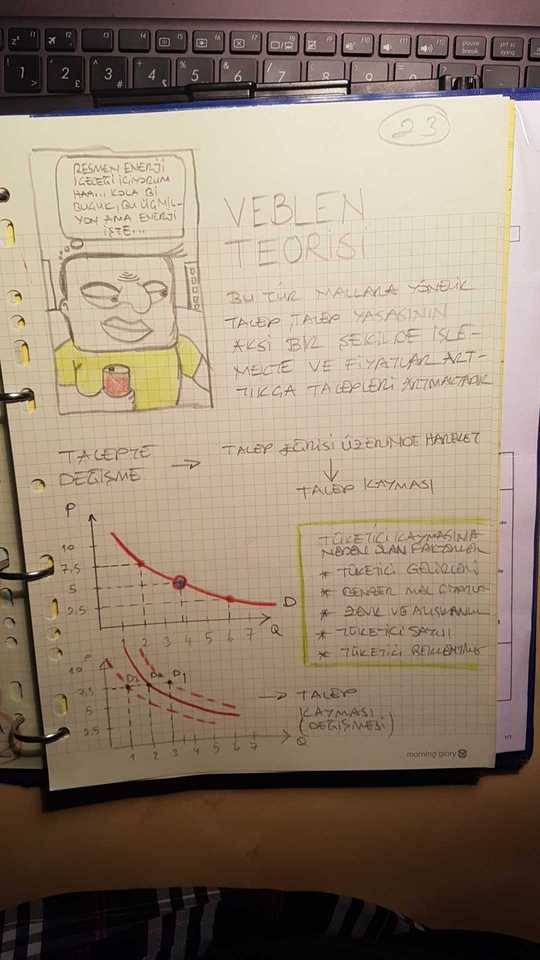 23
RESMEN ENERJİ
İÇECEĞİ İÇİYORUM
HAA... KOLA Bİ
BUÇUK, BU ÜÇ MİL-
YON AMA ENERJİ
İŞTE...
VEBLEN
TEORİSİ
BU TÜR MALLARA YÖNELİK
TALEP, TALEP YASASININ
AKSİ BİR ŞEKİLDE İŞLE-
MEKTE VE FİYATLAR ART-
TIKÇA TALEPLERİ ARTMAKTADIR
TALEPTE
DEĞİŞME → TALEP EĞRİSİ ÜZERİNDE HAREKET
↓
TALEP KAYMASI
P
10
7,5
5
2,5
1 2 3 4 5 6 7 Q
D
TÜKETİCİ KAYMASINA
NEDEN OLAN FAKTÖRLER
* TÜKETİCİ GELİRLERİ
* BENZER MAL
* ZEVK VE
* TÜKETİCİ SAYISI
* TÜKETİCİ
P
10
7,5
5
2,5
D1
1 2 3 4 5 6 7 Q
→ TALEP
KAYMASI
(DEĞİŞMESİ)
morning glory